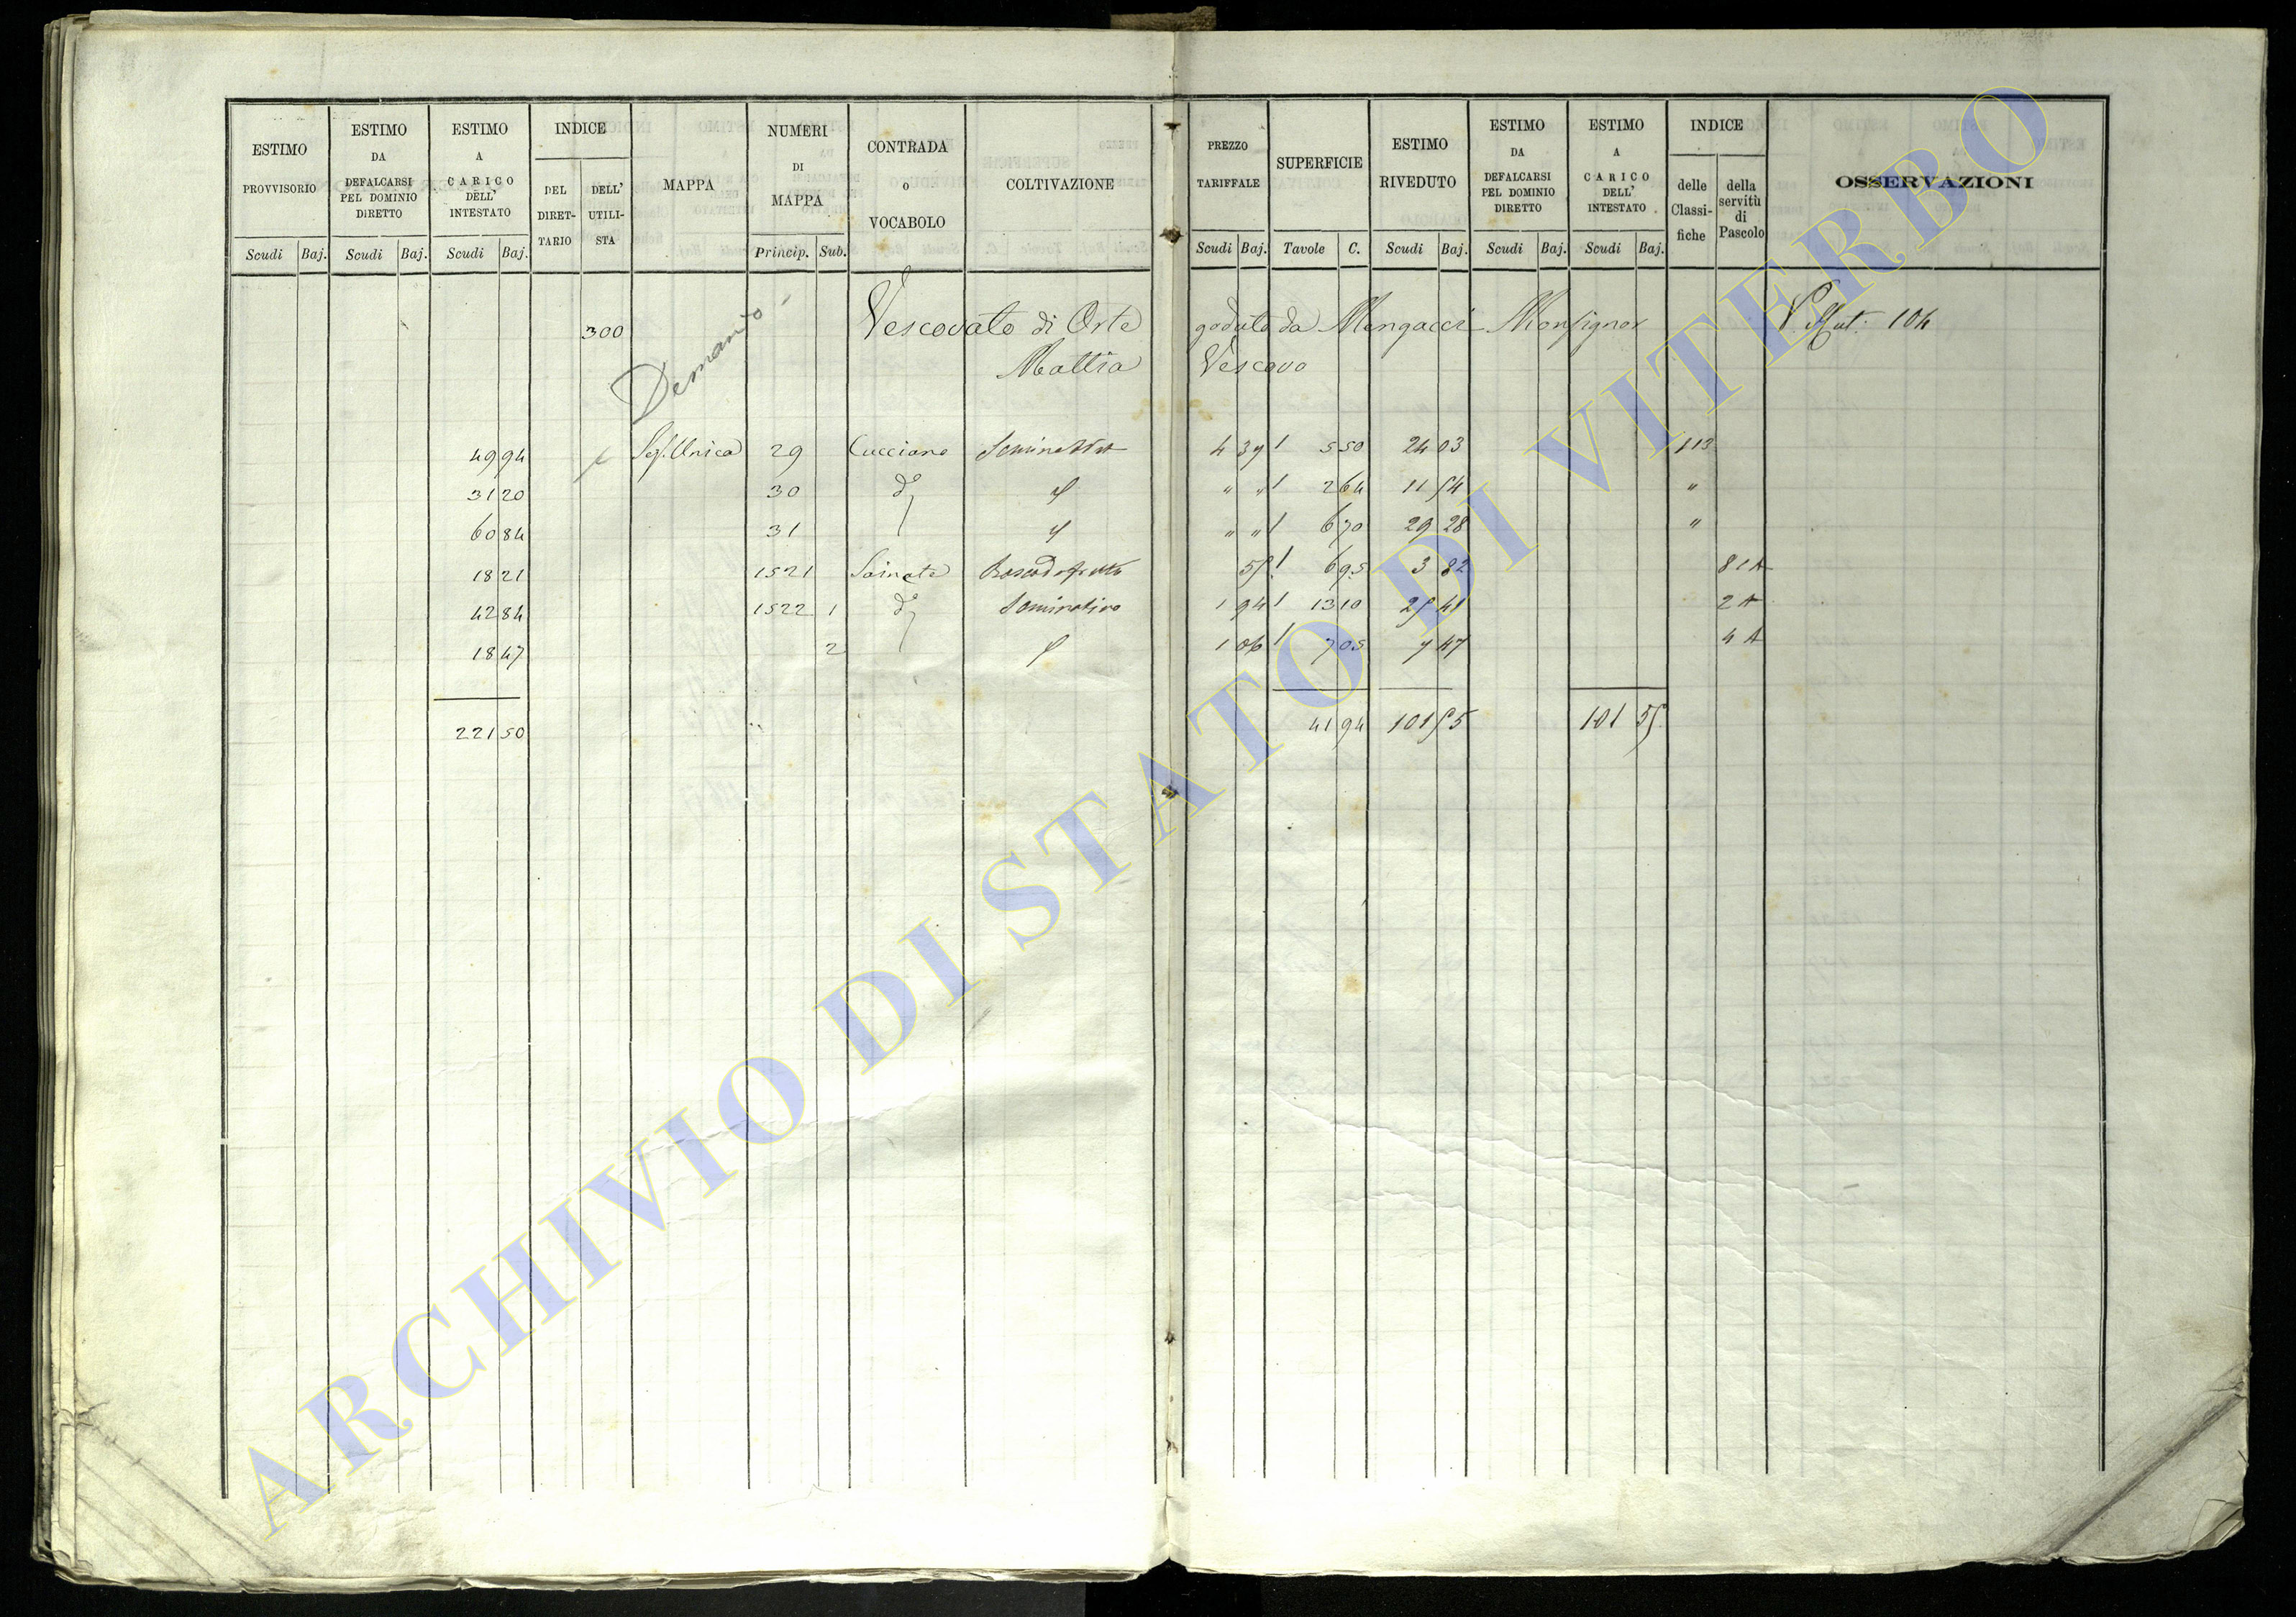 ESTIMO PROVVISORIO | ESTIMO DA DEFALCARSI PEL DOMINIO DIRETTO | ESTIMO A CARICO DELL' INTESTATO | INDICE DEL DIRETTARIO | DELL' UTILISTA | MAPPA | NUMERI DI MAPPA | CONTRADA O VOCABOLO | COLTIVAZIONE | PREZZO TARIFFALE | SUPERFICIE | ESTIMO RIVEDUTO | ESTIMO DA DEFALCARSI PEL DOMINIO DIRETTO | ESTIMO A CARICO DELL' INTESTATO | INDICE delle Classifiche | della servitù di Pascolo | OSSERVAZIONI
Scudi | Baj. | Scudi | Baj. | Scudi | Baj. | Princip. | Sub. | Scudi | Baj. | Tavole | C. | Scudi | Baj. | Scudi | Baj. | Scudi | Baj.
300 | Vescovato di Orte goduto da Mengacci Monsignor | V. Mut. 104
Demanio | Mattia Vescovo
49 94 | Sez. Unica | 29 | Cucciano | Seminativo | 4 39 | 5 50 | 24 03 | 113
31 20 | 30 | do | " | " " | 2 64 | 11 54 | "
60 84 | 31 | " | " " | 6 70 | 29 28 | "
18 21 | 1521 | 55 | 6 95 | 3 82 | 81 A
42 84 | 1522 | 1 | do | Seminativo | 1 94 | 13 10 | 25 41 | 2 A
18 47 | 2 | " | 1 06 | 7 05 | 7 47 | 4 A
221 50 | 41 94 | 101 55 | 101 55
ARCHIVIO DI STATO DI VITERBO